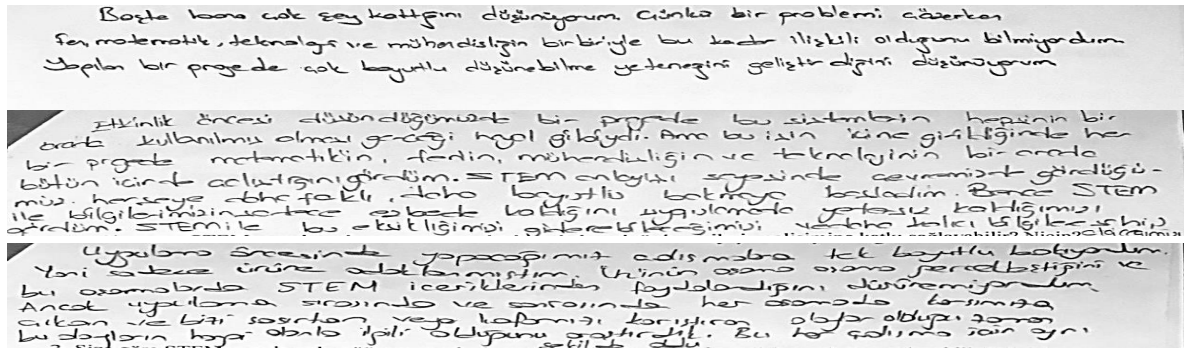 Başta bana çok şey kattığını düşünüyorum. Çünkü bir problemi çözerken
fen, matematik, teknoloji ve mühendisliğin birbiriyle bu kadar ilişkili olduğunu bilmiyordum.
Yapılan bir projede çok boyutlu düşünebilme yeteneğini geliştirdiğini düşünüyorum
Etkinlik öncesi düşündüğümüzde bir projede bu sistemlerin hepsinin bir
arada kullanılmış olması gerçeği hayal gibiydi. Ama bu işin içine girildiğinde her
bir projede matematik'in, fenin, mühendisliğin ve teknolojinin bir arada
bütün içinde çalıştığını gördüm. STEM anlayışı sayesinde çevremizde gördüğü-
müz herşeye daha farklı, daha boyutlu bakmaya başladım. Bence STEM
ile bilgilerimizin sadece ezberde kaldığını uygulamada yetersiz kaldığımızı
gördüm. STEM ile bu eksikliğimizi giderebileceğimizi ve daha kalıcı bilgilere sahip
Uygulama öncesinde yapacağımız çalışmalara tek boyutlu bakıyordum.
Yani sadece ürüne odaklanmıştım. Ürünün aşama aşama gerçekleştiğini ve
bu aşamalarda STEM içeriklerinden faydalandığını düşünemiyordum
Ancak uygulama sırasında ve sonrasında her aşamada karşımıza
çıkan ve bizi şaşırtan veya kafamızı karıştıran olaylar olduğu zaman
bu olayların hangi alanla ilgili olduğunu araştırdık. Bu her çalışma için aynı
şekilde oldu